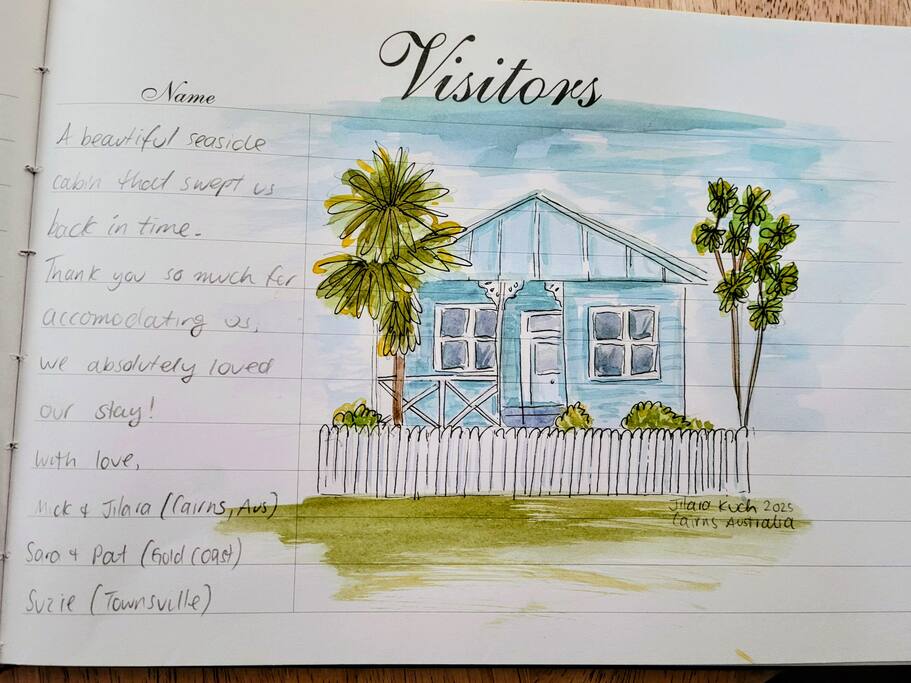 Visitors
Name
A beautiful seaside
cabin that swept us
back in time.
Thank you so much for
accomodating us,
we absolutely loved
our stay!
With love,
Mick & Jilara (Cairns, Aus)
Sara & Pat (Gold Coast)
Suzie (Townsville)
Jilara Kuch 2025
Cairns Australia